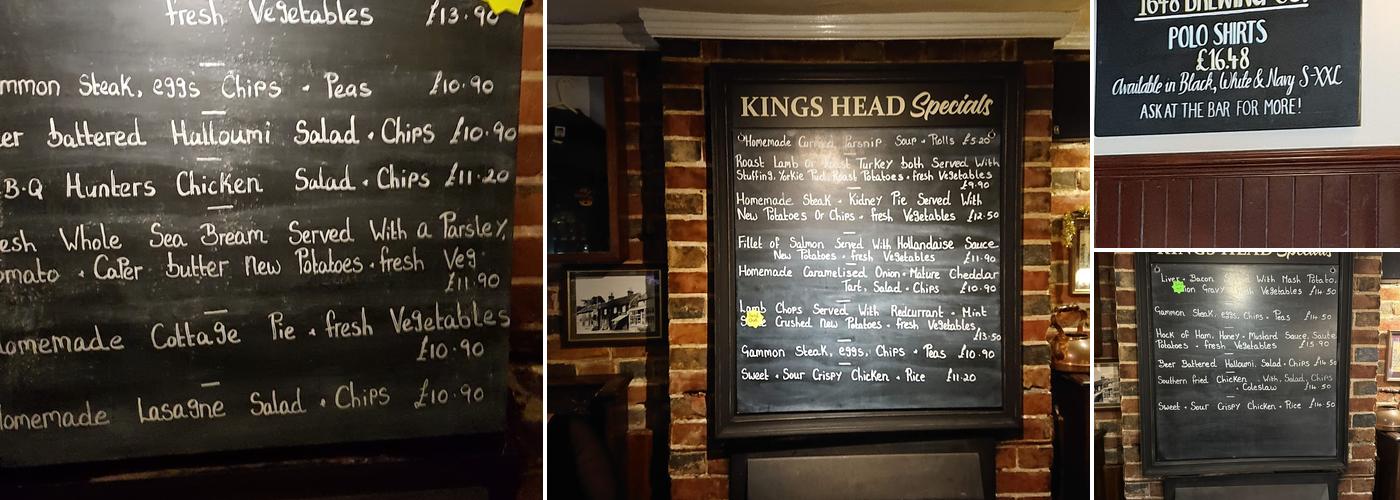 fresh Vegetables £13.90
mmon Steak, eggs Chips + Peas £10.90
er battered Halloumi Salad + Chips £10.90
B-B-Q Hunters Chicken Salad + Chips £11.20
esh Whole Sea Bream Served With a Parsley,
omato + Caper butter New Potatoes + fresh Veg.
£11.90
Homemade Cottage Pie + fresh Vegetables
£10.90
Homemade Lasagne Salad + Chips £10.90
KINGS HEAD Specials
Homemade Curried Parsnip Soup + Rolls £5.20
Roast Lamb or Roast Turkey both Served With
Stuffing, Yorkie Pud, Roast Potatoes + fresh Vegetables
£9.90
Homemade Steak + Kidney Pie Served With
New Potatoes Or Chips + fresh Vegetables £12.50
Fillet of Salmon Served With Hollandaise Sauce
New Potatoes + fresh Vegetables £11.90
Homemade Caramelised Onion + Mature Cheddar
Tart, Salad + Chips £10.90
Lamb Chops Served With Redcurrant + Mint
Crushed New Potatoes + fresh Vegetables
£13.50
Gammon Steak, eggs, Chips + Peas £10.90
Sweet + Sour Crispy Chicken + Rice £11.20
1648 BREWING CO.
POLO SHIRTS
£16.48
Available in Black, White & Navy S-XXL
ASK AT THE BAR FOR MORE!
Specials
Liver + Bacon With Mash Potato,
Gravy Vegetables £14.50
Gammon Steak, eggs, Chips + Peas £14.50
Hock of Ham, Honey + Mustard Sauce, Saute
Potatoes + fresh Vegetables £15.90
Beer Battered Halloumi, Salad + Chips £14.50
Southern fried Chicken With Salad, Chips
+ Coleslaw £14.50
Sweet + Sour Crispy Chicken + Rice £14.50